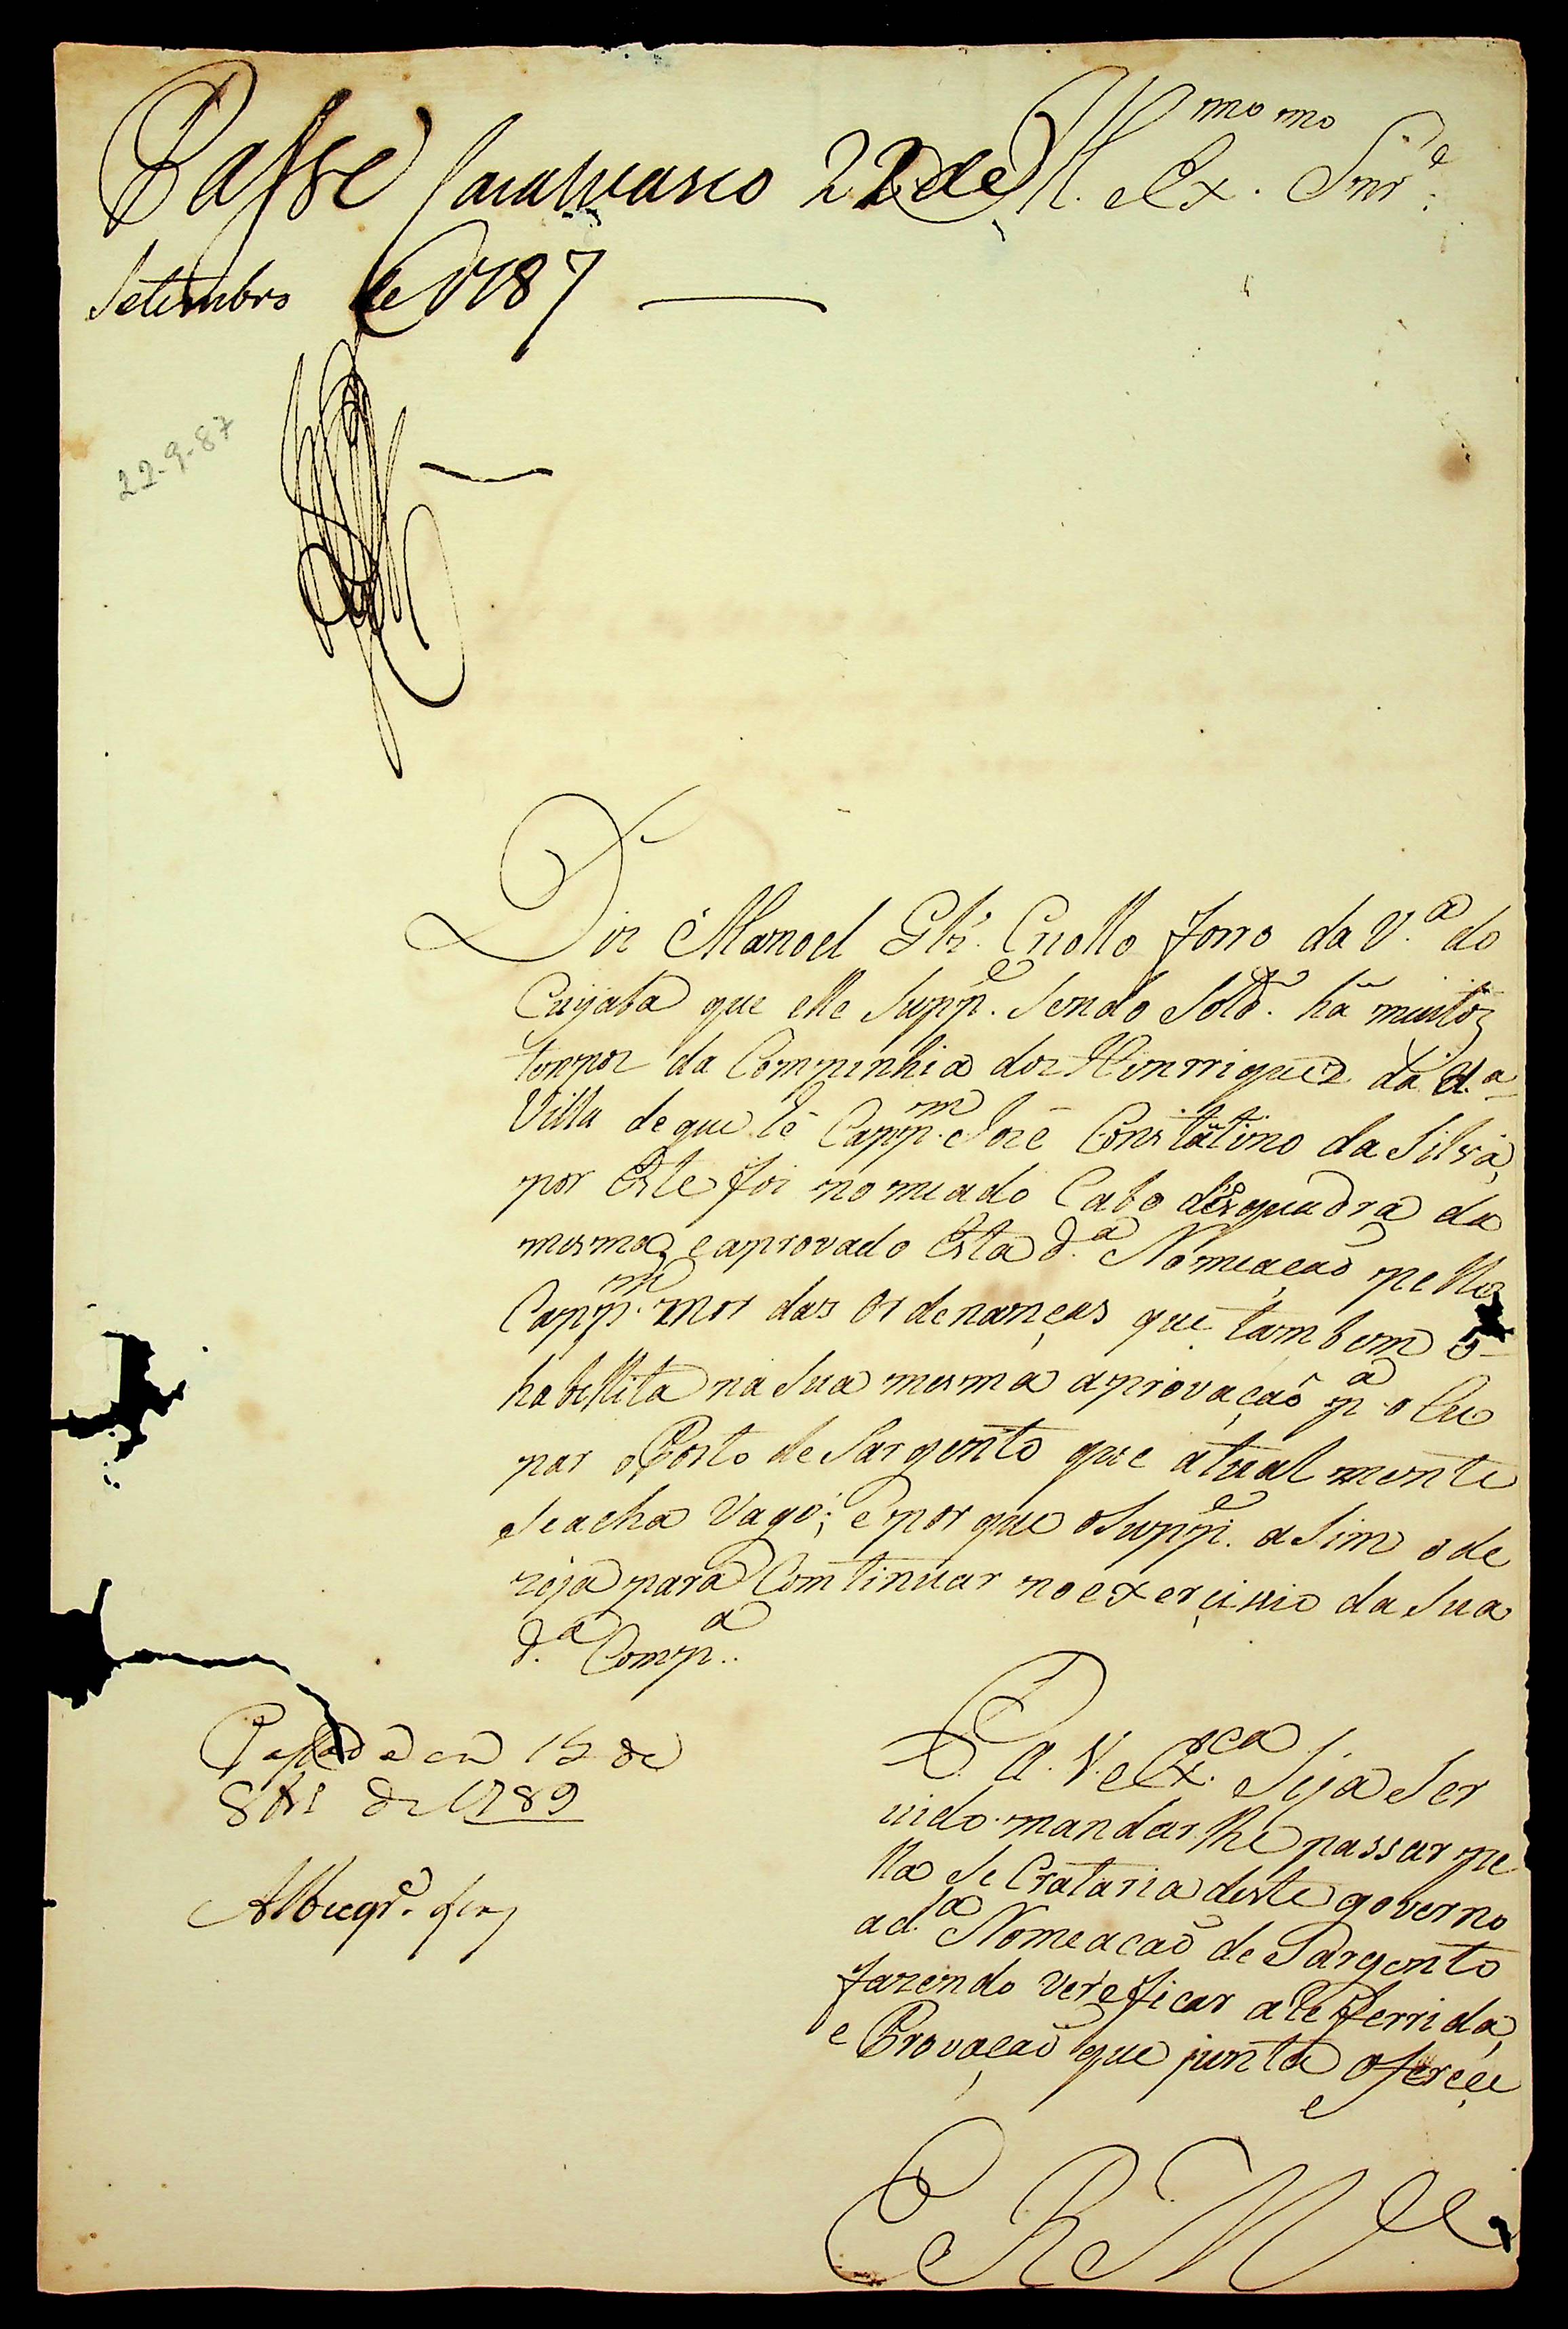 Passe Casalvasco 22 de
Setembro de 1787
Ill.mo Ex.mo Snr.
22-9-87
Diz Manoel Glz'. Criollo forro da V.a do
Cuyaba que elle Supp.e Sendo Sold.o hã muitos
tempos da Compenhia dos Hinrriques da d.a
Villa de que hê Capp.m Joze Constãtino da Silva,
por Este foi nomeado Cabo desquadra da
mesma, e aprovado Esta d.a Nomeacaõ pello
Capp.m mor das Ordenanças que tambem o
habellita na Sua mesma aprovaçaõ p.a oCu
par o Posto de Sargento que atual mente
Se acha Vago; e por que o Supp.e aSim o de
zeja para Comtinuar no exerçissio da Sua
d.a Comp.a
P. A. V. Ex.ca Seja Ser
uido mandar lhe passar pe
lla SeCrataria deste governo
a d.a Nomeacaõ de Sargento
fazendo Vereficar a Referrida,
e Provaçaõ que junta oferéçe
Passada em 15 de
8br.o de 1789
Albuqr.e
E R M.ce